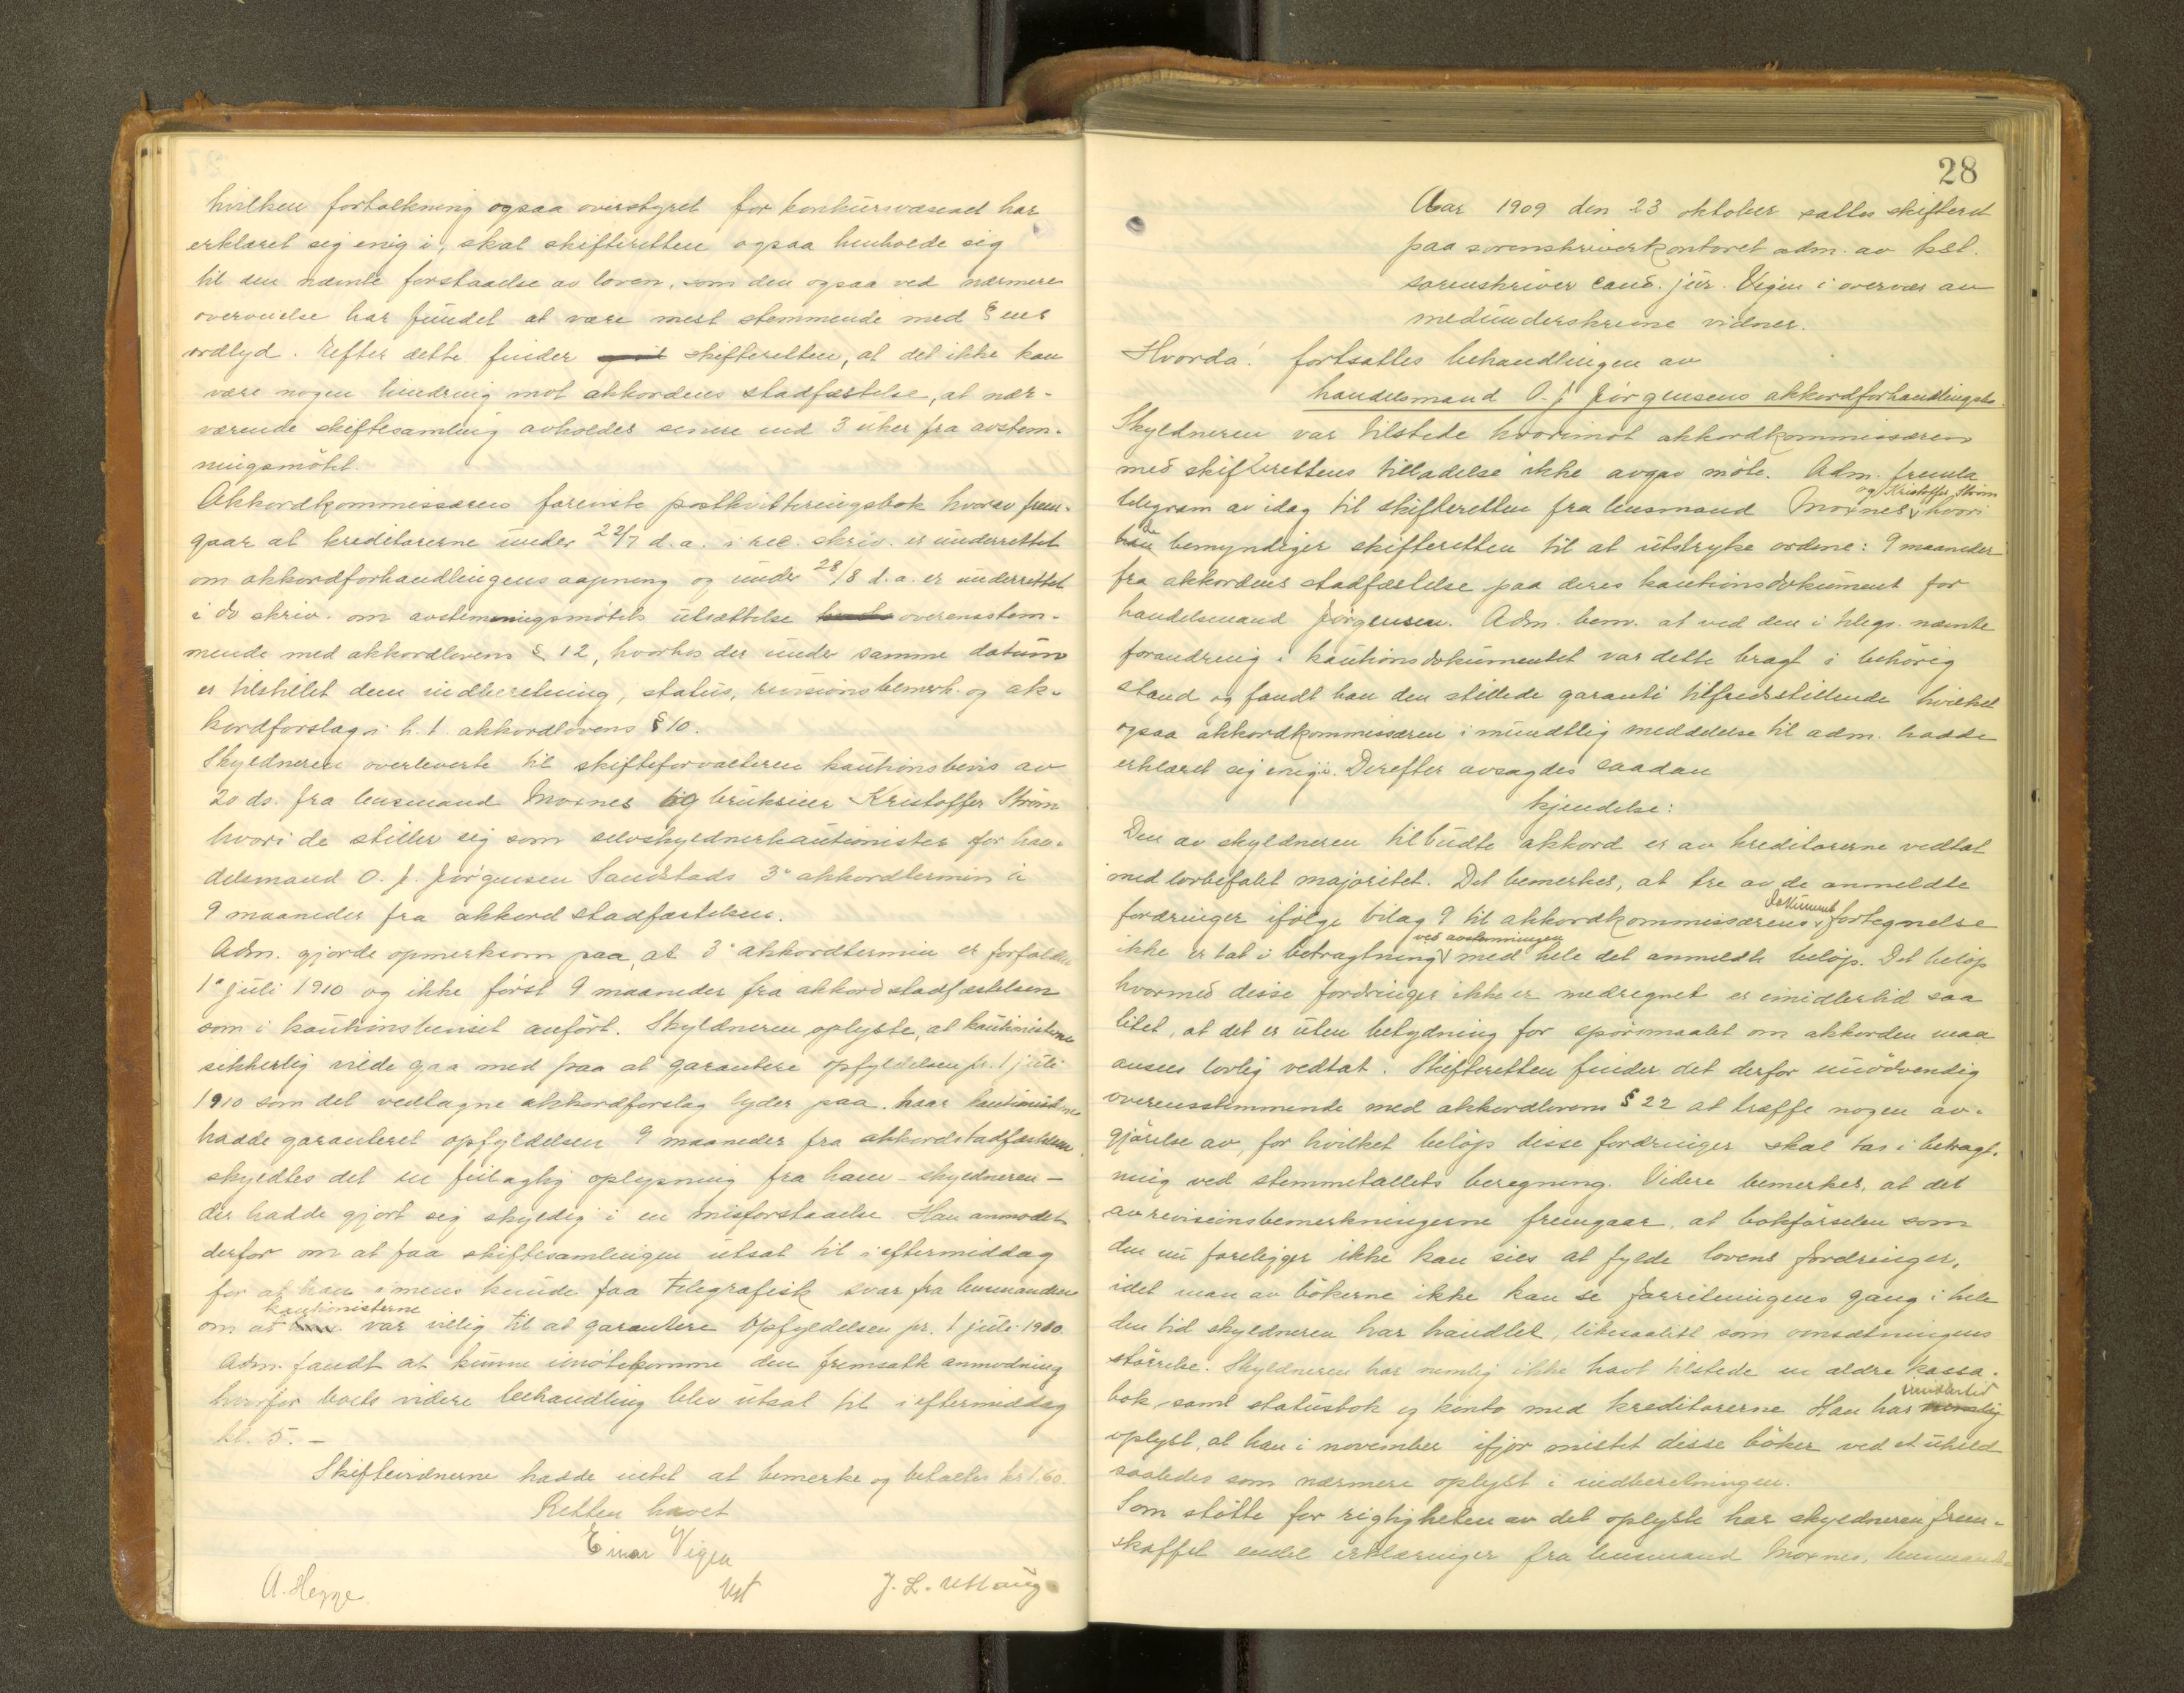 hvilken fortolkning ogsaa overstyret for konkursvæsenet har
erklæret sig enig i, skal skifteretten ogsaa henholde sig
til den nævnte forstaaelse av loven, som den ogsaa ved nærmere
overveielse har fundet at være mest stemmende med §ens
ordlyd. Efter dette finder skifteretten, at det ikke kan
være nogen hindring mot akkordens stadfæstelse, at nær-
værende skiftesamling avholdes senere end 3 uker fra avstem-
ningsmötet.
Akkordkommissæren foreviste postkvitteringsbok hvorav frem-
gaar at kreditorerne under 22/7 d.a. i rec. skriv. er underrettet
om akkordforhandlingens aapning og under 28/8 d.a. er underrettet
i do skriv. om avstemningsmötets utsættelse overensstem-
mende med akkordlovens § 12, hvorhos der under samme datum
er tilstillet dem indberetning, status, revisionsbemerk. og ak-
kordforslag i h.t. akkordlovens § 10.
Skyldneren overleverte til skifteforvalteren kautionsbevis av
20 ds. fra lensmand Moxnes og brukseier Kristoffer Ström
hvori de stiller sig som selvskyldnerkautionister for han-
delsmand O. J. Jörgensen Sandstads 3' akkordtermin à
9 maaneder fra akkord stadfæstelsen.
Adm. gjorde opmerksom paa, at 3' akkordtermin er forfalden
1' juli 1910 og ikke först 9 maaneder fra akkordstadfæstelsen
som i kautionsbeviset anfört. Skyldneren oplyste, at kautionisterne
sikkerlig vilde gaa med paa at garantere opfyldelsen pr. 1 juli
1910 som det vedtagne akkordforslag lyder paa. Naar kautionisterne
hadde garanteret opfyldelsen 9 maaneder fra akkordstadfæstelsen
skyldtes det en feilagtig oplysning fra ham - skyldneren -
der hadde gjort sig skyldig i en misforstaaelse. Han anmodet
derfor om at faa skiftesamlingen utsat til i eftermiddag
for at han imens kunde faa telegrafisk svar fra lensmanden
kautionisterne
om at var villig til at garantere opfyldelsen pr. 1 juli 1910.
Adm. fandt at kunne imötekomme den fremsatte anmodning
hvorfor boets videre behandling blev utsat til i eftermiddag
kl. 5. -
Skiftevidnerne hadde intet at bemerke og betaltes kr 1.60.
Retten hævet
Einar Vigen
A. Hegge. Vst J. L. Uthaug
28
Aar 1909 den 23 oktober sattes skifteret
paa sorenskriverkontoret adm. av kst.
sorenskriver cand. jur. Vigen i overvær av
medunderskrevne vidner.
Hvorda: fortsattes behandlingen av
handelsmand O. J. Jörgensens akkordforhandlingsbo.
Skyldneren var tilstede hvorimot akkordkommissæren
med skifterettens tilladelse ikke avgav möte. Adm. fremla
og Kristoffer Ström
telegram av idag til skifteretten fra lensmand Moxnes hvori
de bemyndiger skifteretten til at utstryke ordene: 9 maaneder
fra akkordens stadfæstelse paa deres kautionsdokument for
handelsmand Jörgensen. Adm. bem. at ved den i telegr. nævnte
forandring i kautionsdokumentet var dette bragt i behörig
stand og fandt han den stillede garanti tilfredsstillende hvilket
ogsaa akkordkommissæren i mundtlig meddelelse til adm. hadde
erklæret sig enig i. Derefter avsagdes saadan
kjendelse:
Den av skyldneren tilbudte akkord er av kreditorerne vedtat
med lovbefalt majoritet. Det bemerkes, at tre av de anmeldte
fordringer ifölge bilag 9 til akkordkommissærens fortegnelse
ved avstemningen
ikke er tat i betragtning med hele det anmeldte belöp. Det belöp
hvormed disse fordringer ikke er medregnet er imidlertid saa
litet, at det er uten betydning for spörsmaalet om akkorden maa
ansees lovlig vedtat. Skifteretten finder det derfor unödvendig
overensstemmende med akkordlovens § 22 at træffe nogen av-
gjörelse av, for hvilket belöp disse fordringer skal tas i betragt-
ning ved stemmetallets beregning. Videre bemerkes, at det
av revisionsbemerkningerne fremgaar, at bokförselen som
den nu foreligger ikke kan sies at fylde lovens fordringer,
idet man av bökerne ikke kan se forretningens gang i hele
den tid skyldneren har handlet, likesaalitt som omsætningens
störrelse. Skyldneren har nemlig ikke havt tilstede en ældre kassa-
bok samt statusbok og konto med kreditorerne. Han har imidlertid
oplyst, at han i november ifjor mistet disse böker ved et uheld
saaledes som nærmere oplyst i indberetningen.
Som stötte for rigtigheten av det oplyste har skyldneren frem-
skaffet endel erklæringer fra lensmand Moxnes,